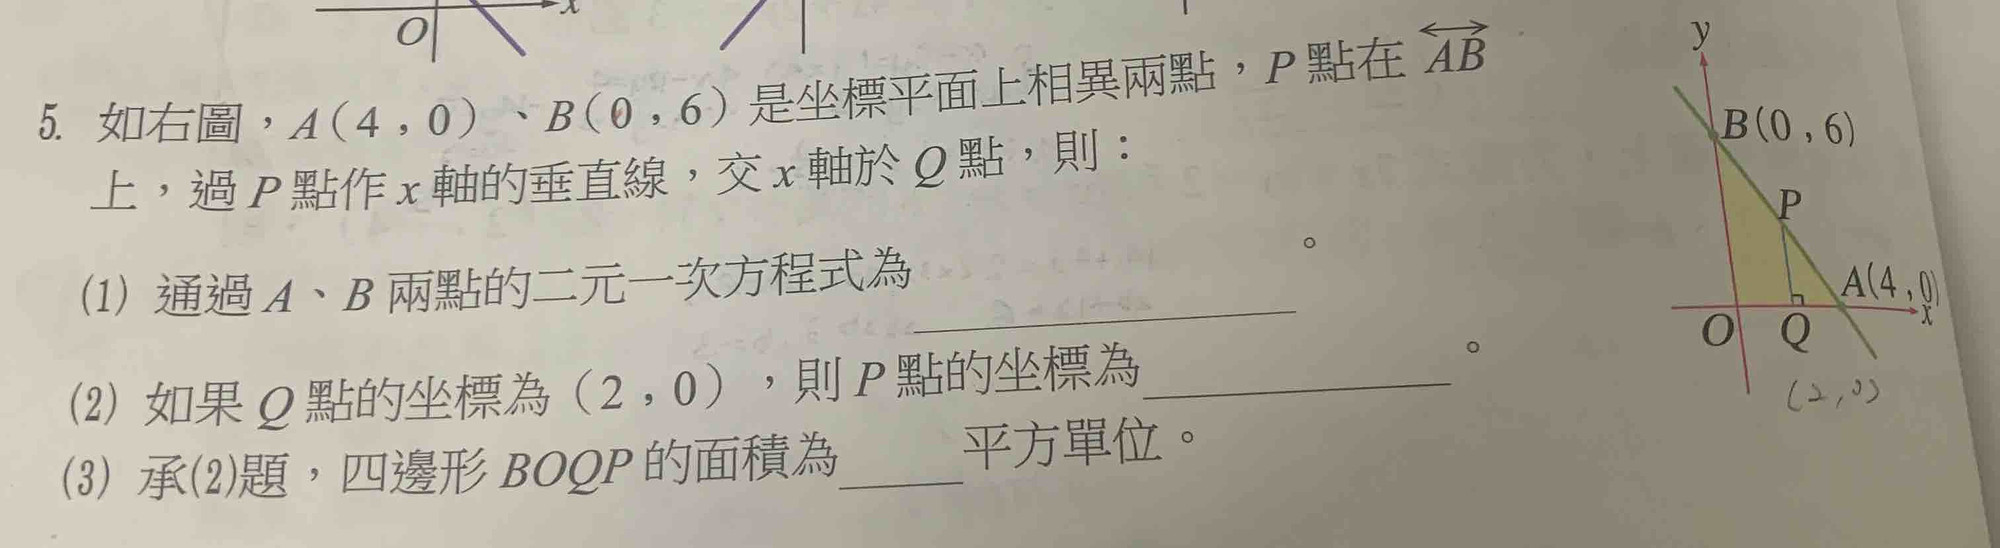 O
x
5. 如右圖，A(4，0)、B(0，6)是坐標平面上相異兩點，P點在 AB
上，過P點作x軸的垂直線，交x軸於Q點，則：
(1) 通過A、B兩點的二元一次方程式為＿＿＿＿＿＿。
(2) 如果Q點的坐標為(2，0)，則P點的坐標為＿＿＿＿＿。
(3) 承(2)題，四邊形BOQP的面積為＿＿平方單位。
y
B(0，6)
P
A(4，0)
x
O Q
(2,0)